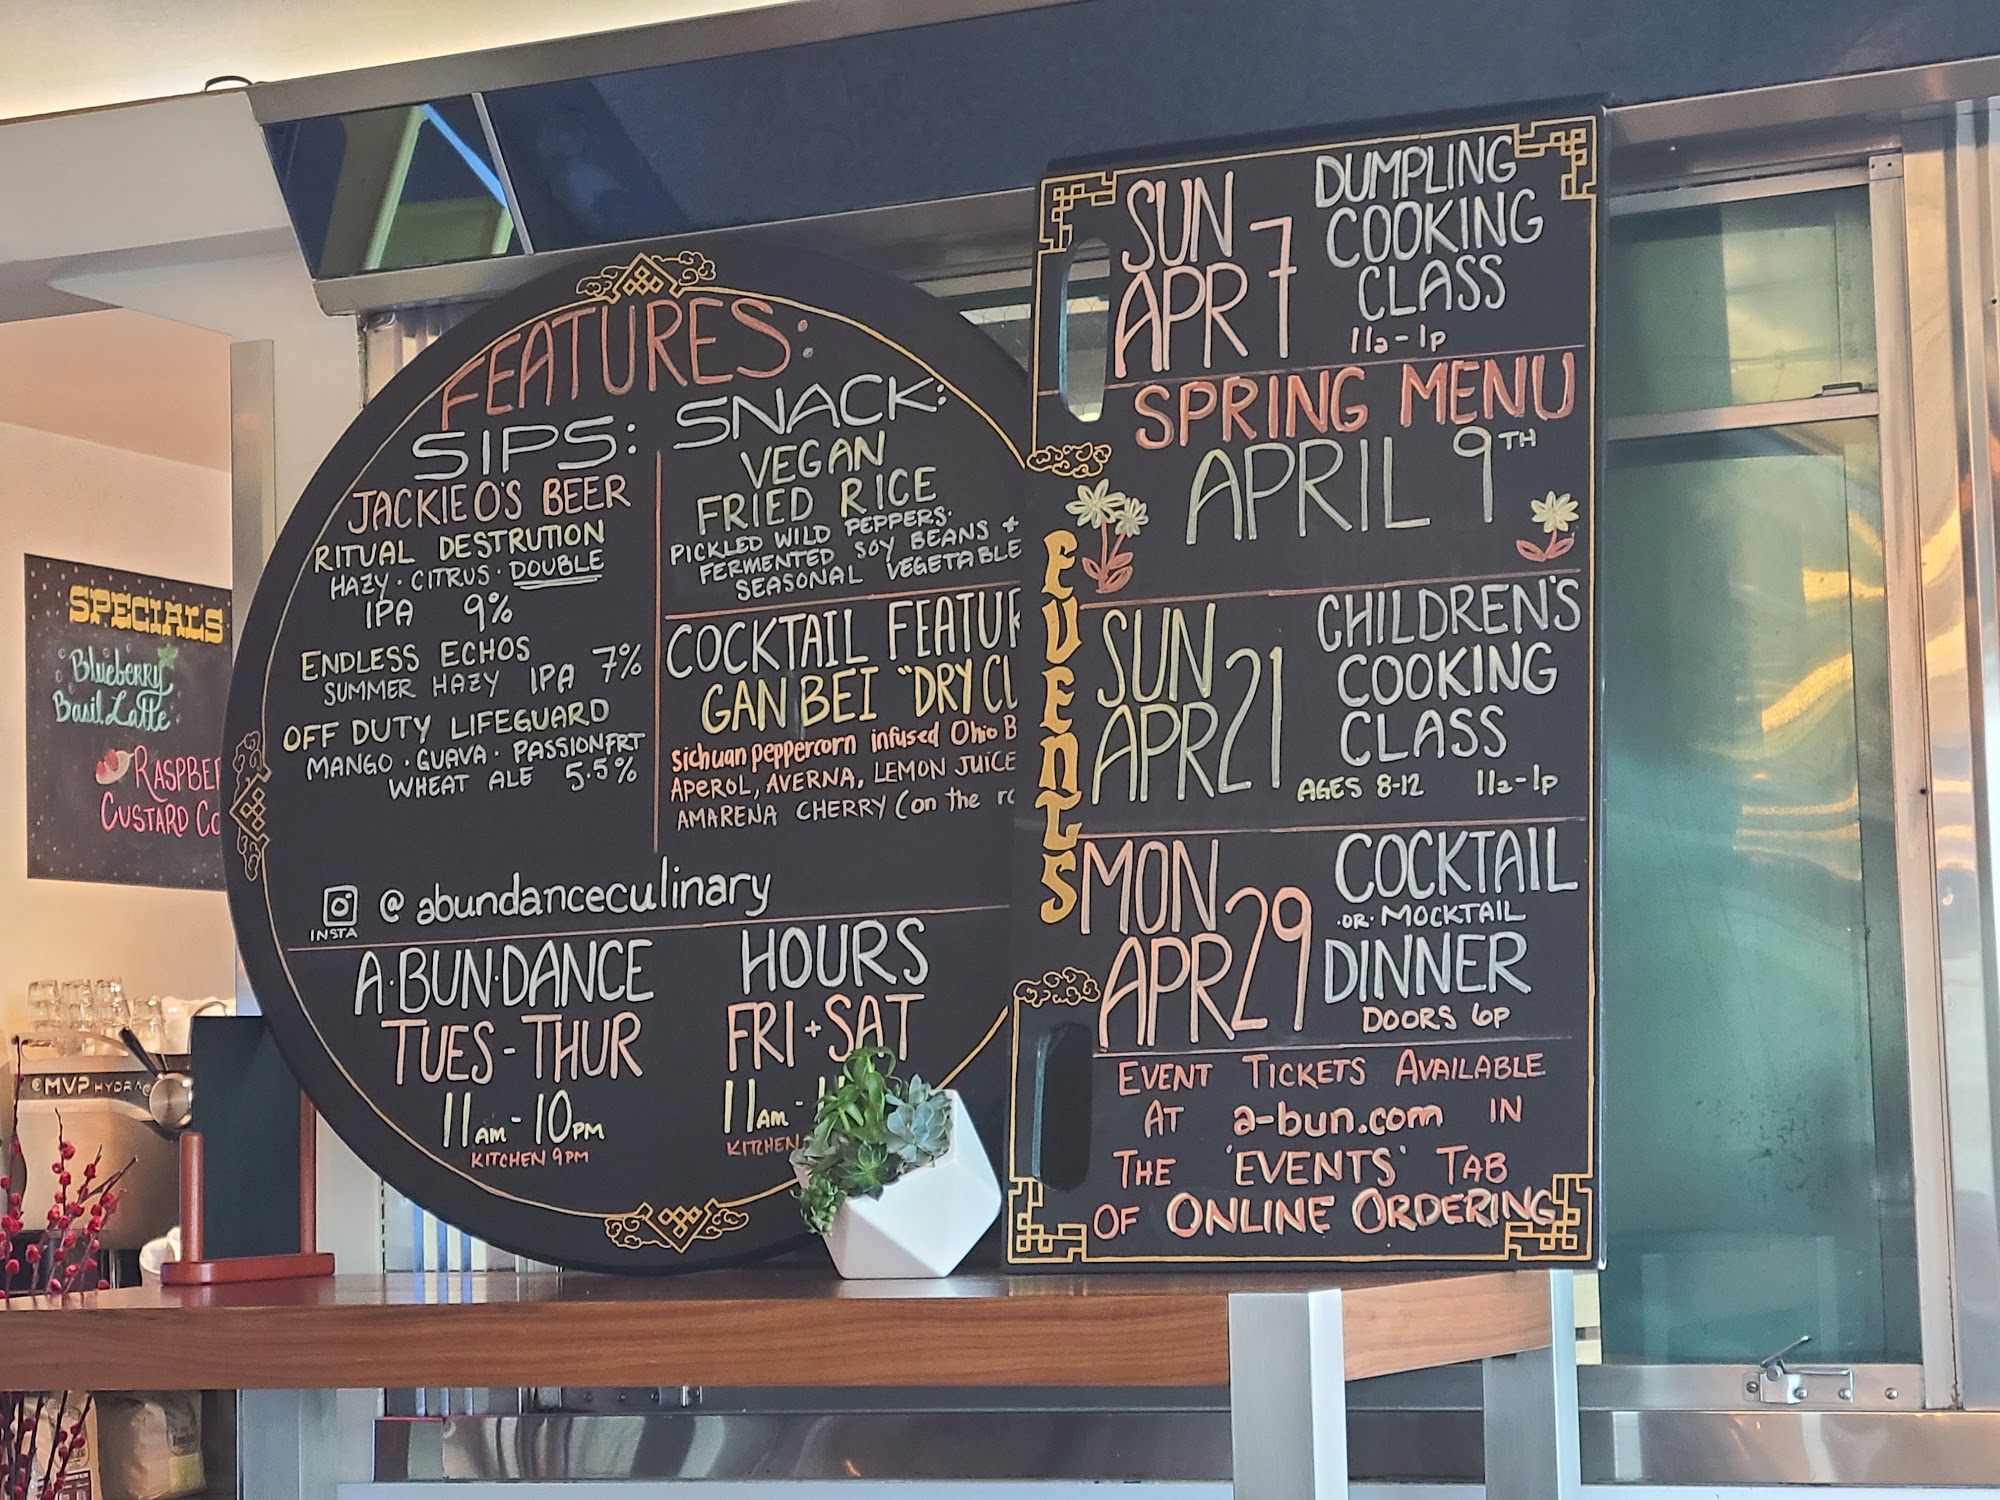 SPECIALS
Blueberry
Basil Latte
CUSTARD
MVP HYDRA
FEATURES:
SIPS:
JACKIE O'S BEER
RITUAL DESTRUTION
HAZY · CITRUS · DOUBLE
IPA 9%
ENDLESS ECHOS
SUMMER HAZY IPA 7%
OFF DUTY LIFEGUARD
MANGO · GUAVA · PASSIONFRT
WHEAT ALE 5.5%
SNACK:
VEGAN
FRIED RICE
PICKLED WILD PEPPERS·
FERMENTED SOY BEANS +
SEASONAL VEGETABLE
COCKTAIL FEATUR
GAN BEI "DRY CU
Sichuan peppercorn infused Ohio B
APEROL, AVERNA, LEMON JUICE
AMARENA CHERRY (on the ro
INSTA @abundanceculinary
A·BUN·DANCE HOURS
TUES - THUR
11AM - 10PM
KITCHEN 9PM
FRI + SAT
11AM -
KITCHEN
EVENTS
SUN APR 7
DUMPLING
COOKING
CLASS
11a-1p
SPRING MENU
APRIL 9TH
SUN APR 21
CHILDREN'S
COOKING
CLASS
AGES 8-12 11a-1p
MON APR 29
COCKTAIL
·OR· MOCKTAIL
DINNER
DOORS 6P
EVENT TICKETS AVAILABLE
AT a-bun.com IN
THE 'EVENTS' TAB
OF ONLINE ORDERING